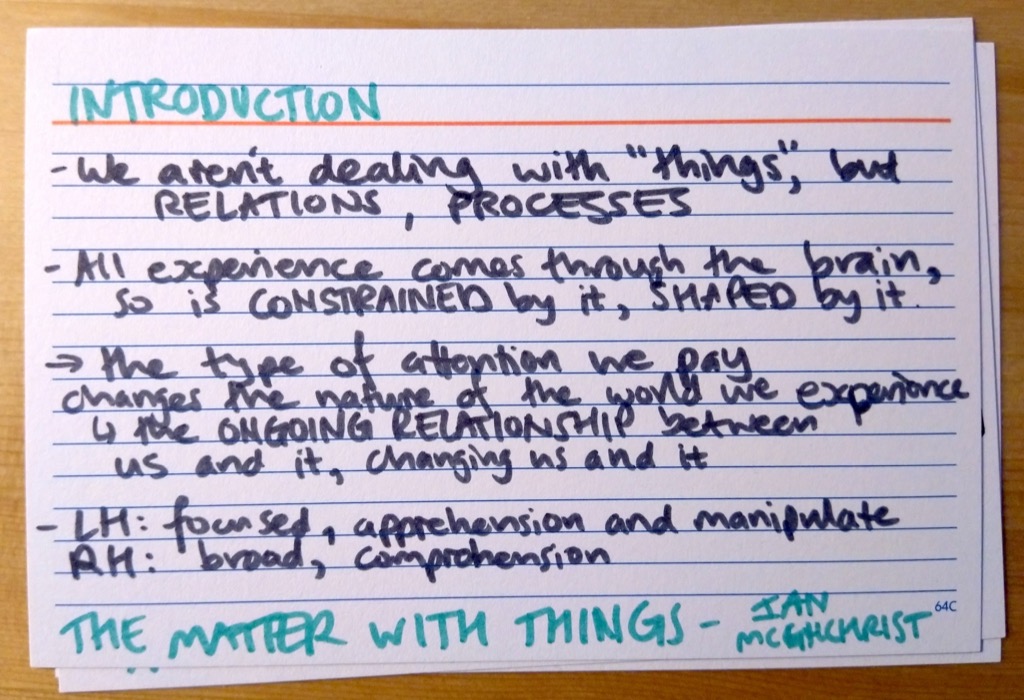 INTRODUCTION
- We aren't dealing with "things", but
RELATIONS, PROCESSES
- All experience comes through the brain,
so is CONSTRAINED by it, SHAPED by it.
→ the type of attention we pay
changes the nature of the world we experience
↳ the ONGOING RELATIONSHIP between
us and it, changing us and it
- LH: focused, apprehension and manipulate
RH: broad, comprehension
THE MATTER WITH THINGS - IAN
MCGHCHRIST
64C